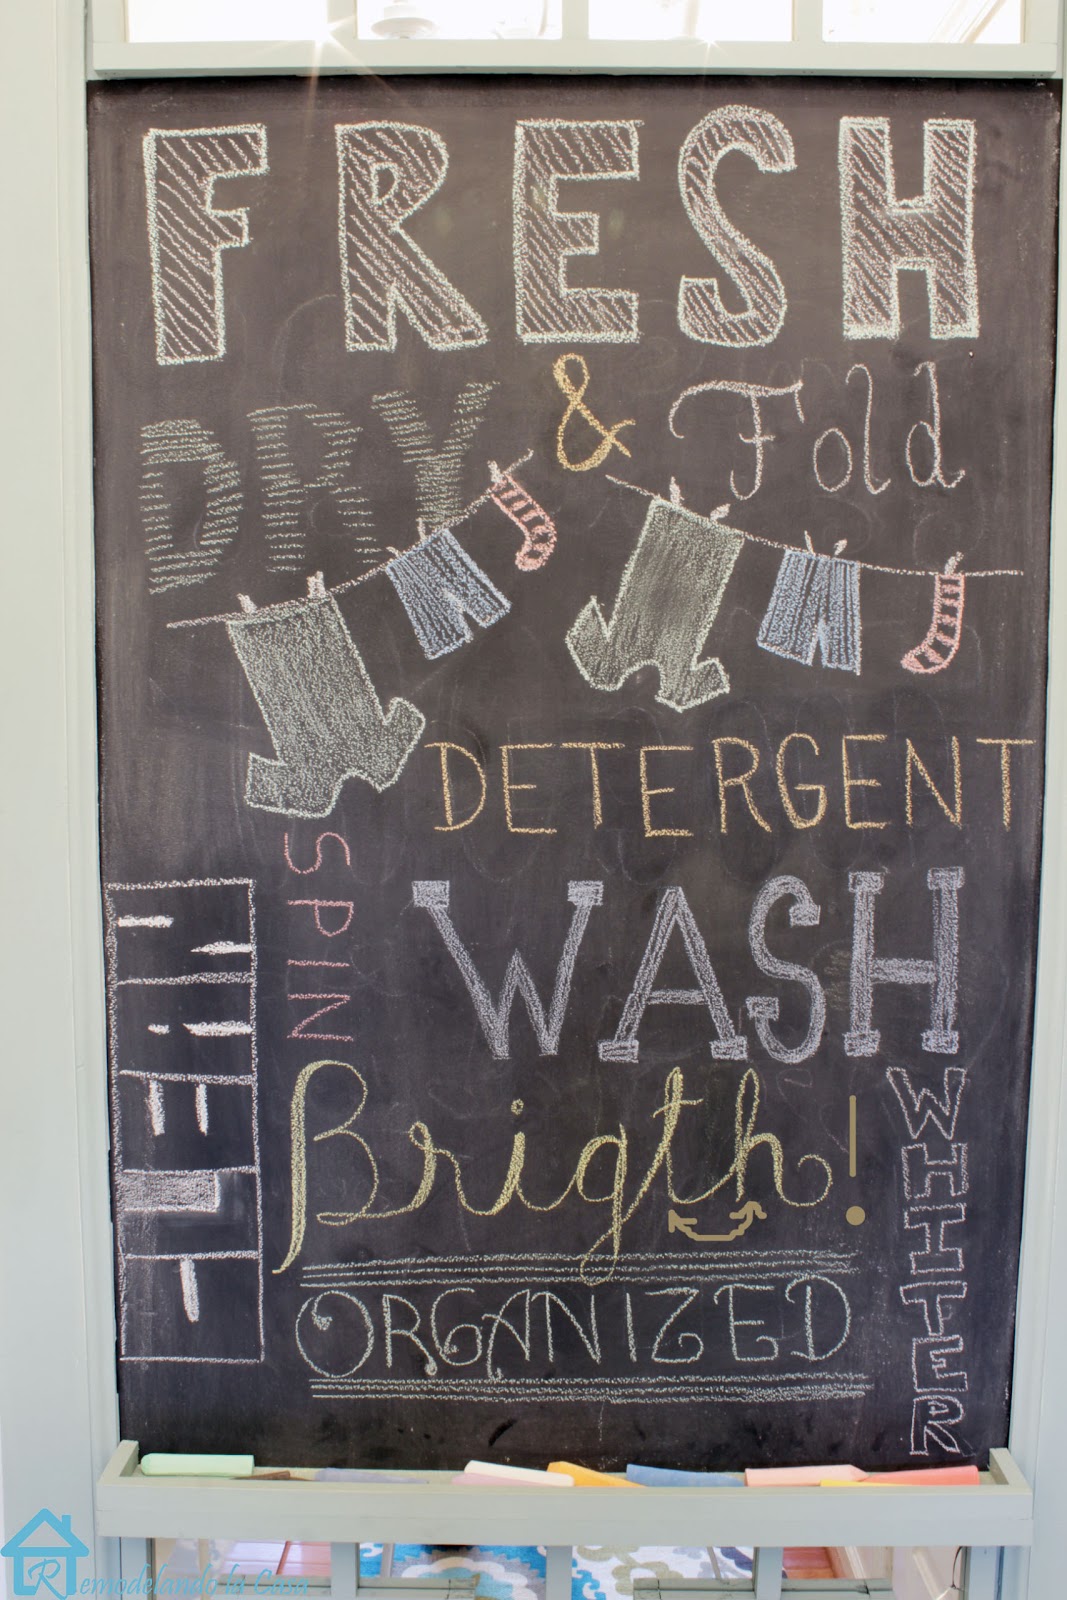 FRESH
DRY & Fold
DETERGENT
SPIN
WASH
CLEAN
Brigth!
WHITER
ORGANIZED
Remodelando la Casa